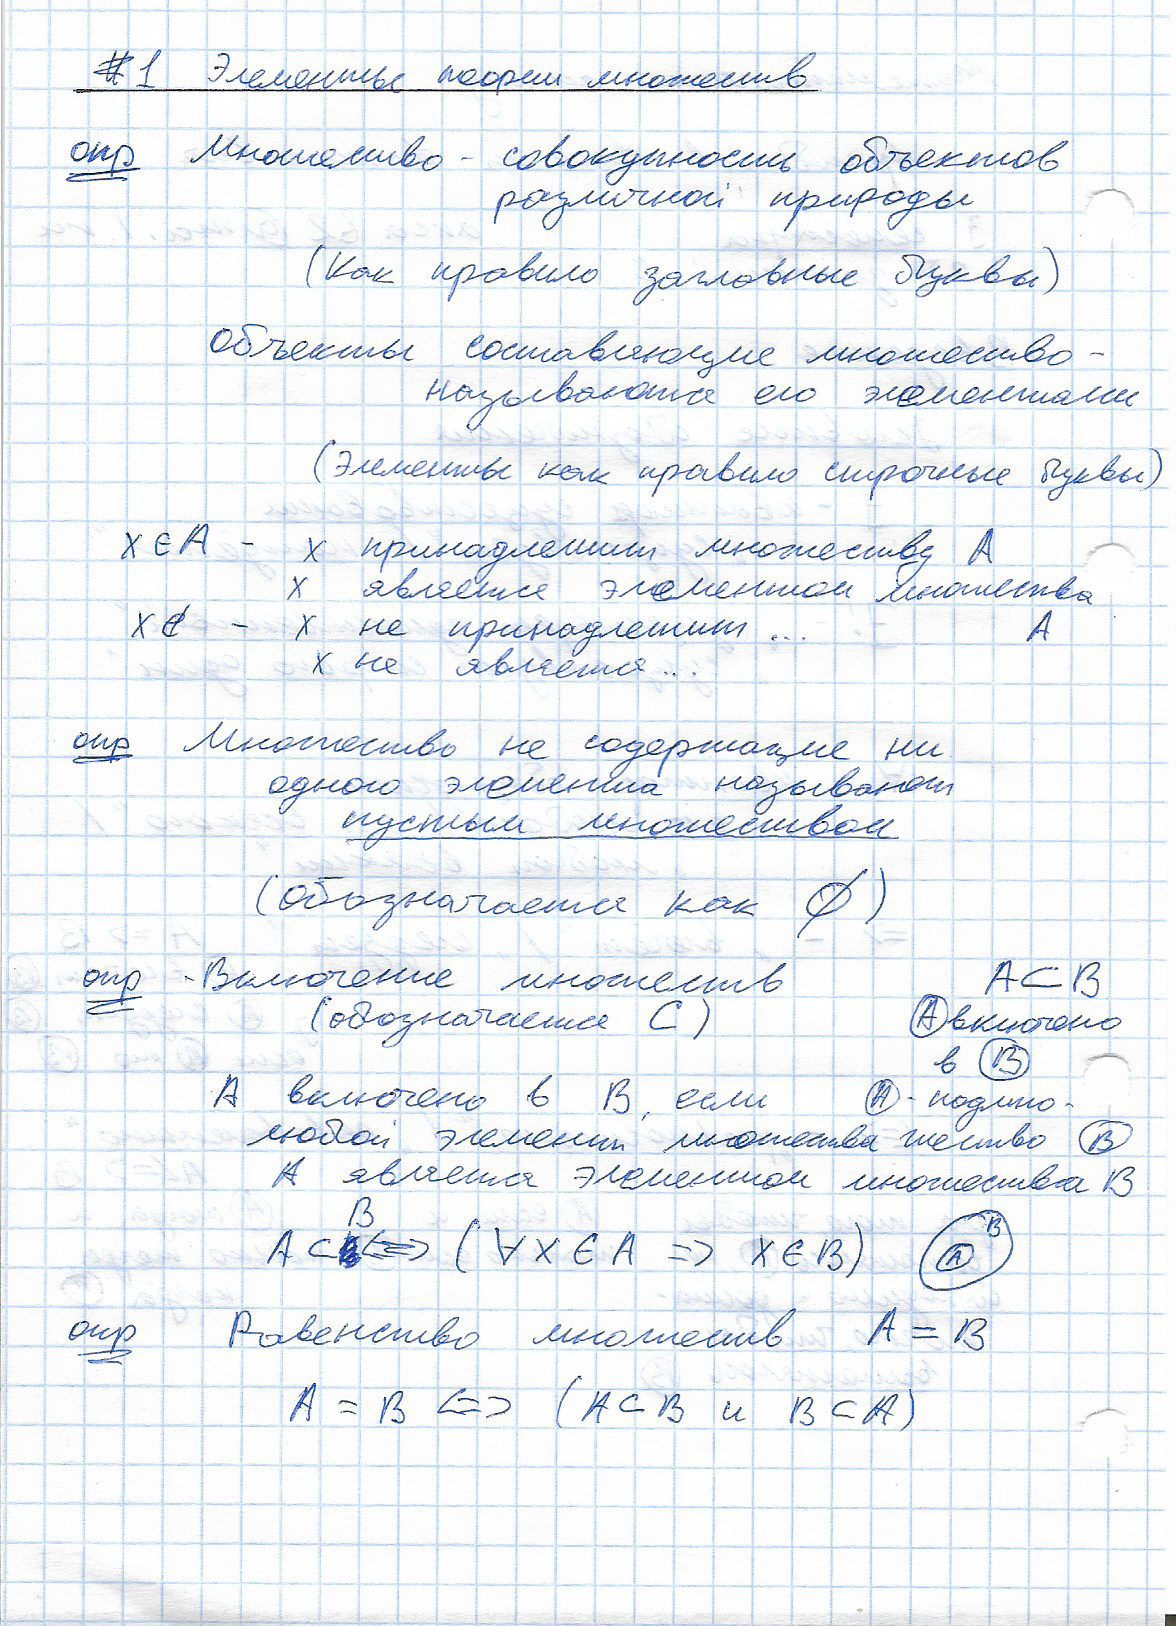 #1 Элементы теории множеств
опр Множество - совокупность объектов
различной природы
(Как правило заглавные буквы)
Объекты составляющие множество -
называются его элементами
(Элементы как правило строчные буквы)
x ∈ A - x принадлежит множеству A
x является элементом множества
A
x ∉ - x не принадлежит ...
x не является ...
опр Множество не содержащие ни
одного элемента называют
пустым множеством
(обозначается как ∅)
опр - Включение множеств
(обозначается ⊂)
A ⊂ B
A включено
в B
A - подмно-
жество B
A включено в B, если
любой элемент множества
A является элементом множества B
A ⊂ B <=> (∀ x ∈ A => x ∈ B)
B
A
опр Равенство множеств A = B
A = B <=> (A ⊂ B и B ⊂ A)